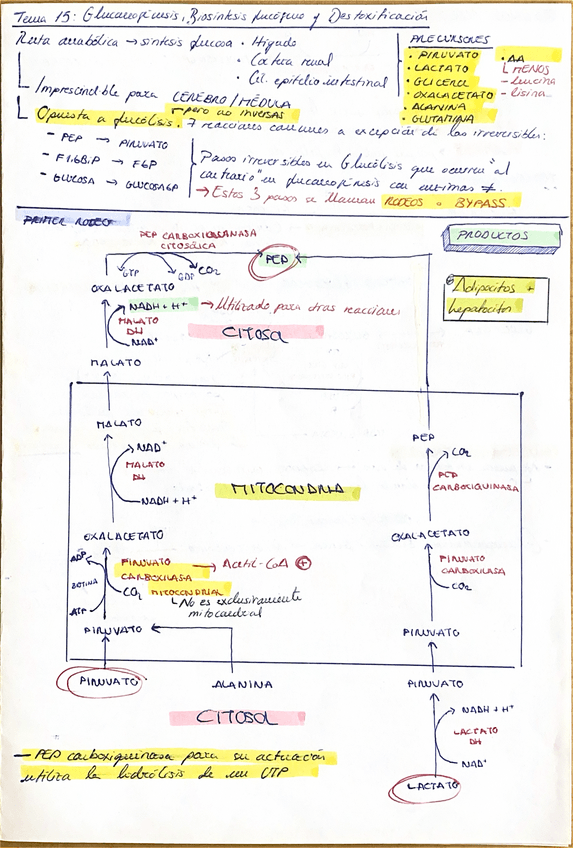 Tema 15: Glucaneogénesis, Biosíntesis glucógeno y Destoxificación
Ruta anabólica → síntesis glucosa
· Hígado
· Corteza renal
· Cél. epitelio intestinal
Imprescindible para CEREBRO/MÉDULA
PRECURSORES
· PIRUVATO
· LACTATO
· GLICEROL
· OXALACETATO
· ALANINA
· GLUTAMINA
· AA
MENOS
- leucina
- lisina
pero no inversas
Opuesta a glucólisis. 7 reacciones comunes a excepción de las irreversibles:
- PEP → PIRUVATO
- F1,6BiP → F6P
- GLUCOSA → GLUCOSA6P
Pasos irreversibles en Glucólisis que ocurren "al
contrario" en glucaneogénesis con enzimas ≠.
→ Estos 3 pasos se llaman RODEOS o BYPASS
PRIMER RODEO
PRODUCTOS
PEP CARBOXIQUINASA
CITOSÓLICA
PEP
GTP
GDP
CO₂
OXALACETATO
Adipocitos +
hepatocitos
NADH + H⁺ → Utilizado para otras reacciones
MALATO
DH
NAD⁺
CITOSOL
MALATO
MALATO
NAD⁺
MALATO
DH
NADH + H⁺
MITOCONDRIA
PEP
CO₂
PEP
CARBOXIQUINASA
OXALACETATO
OXALACETATO
ADP
BIOTINA
ATP
PIRUVATO → Acetil-CoA ⊕
CARBOXILASA
CO₂ MITOCONDRIAL
No es exclusivamente
mitocondrial
PIRUVATO
CARBOXILASA
CO₂
PIRUVATO
PIRUVATO
PIRUVATO
ALANINA
PIRUVATO
CITOSOL
NADH + H⁺
LACTATO
DH
NAD⁺
LACTATO
- PEP carboxiquinasa para su actuación
utiliza la hidrólisis de un GTP